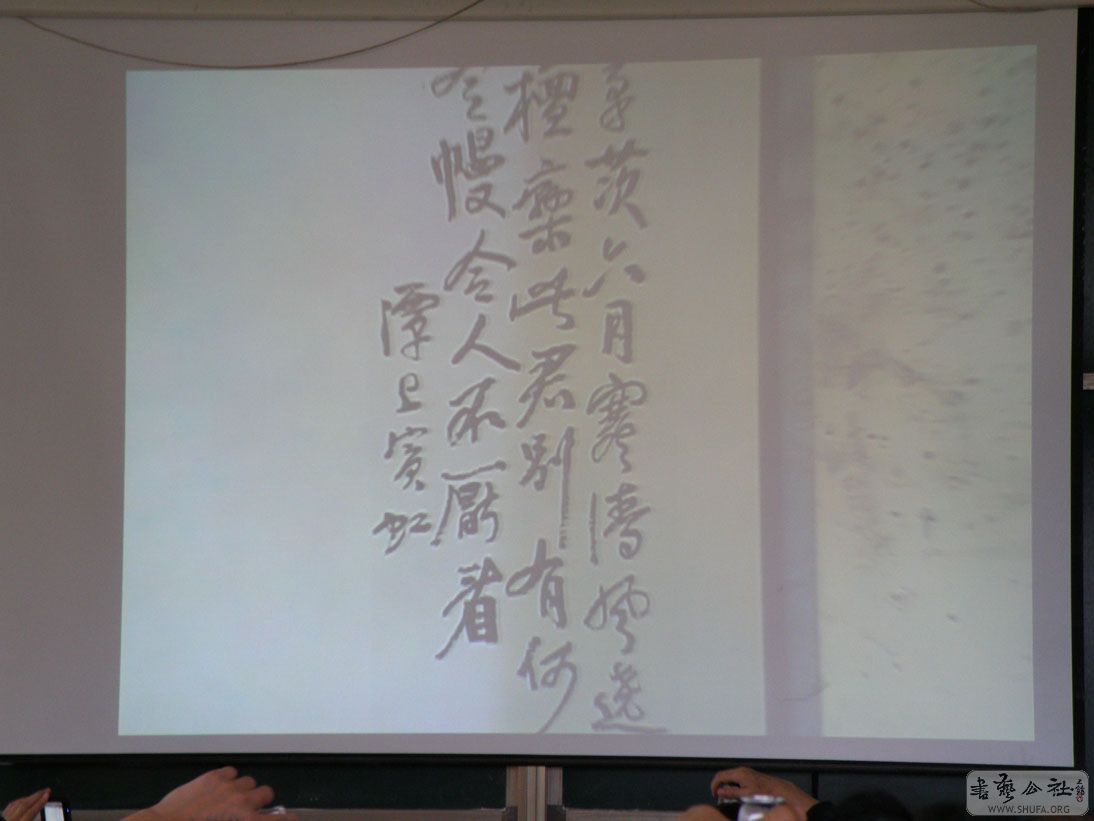 茨六月寒濤風遶
檀欒此君別有何
幔令人不厭看
潭上賓虹
書藝公社
WWW.SHUFA.ORG